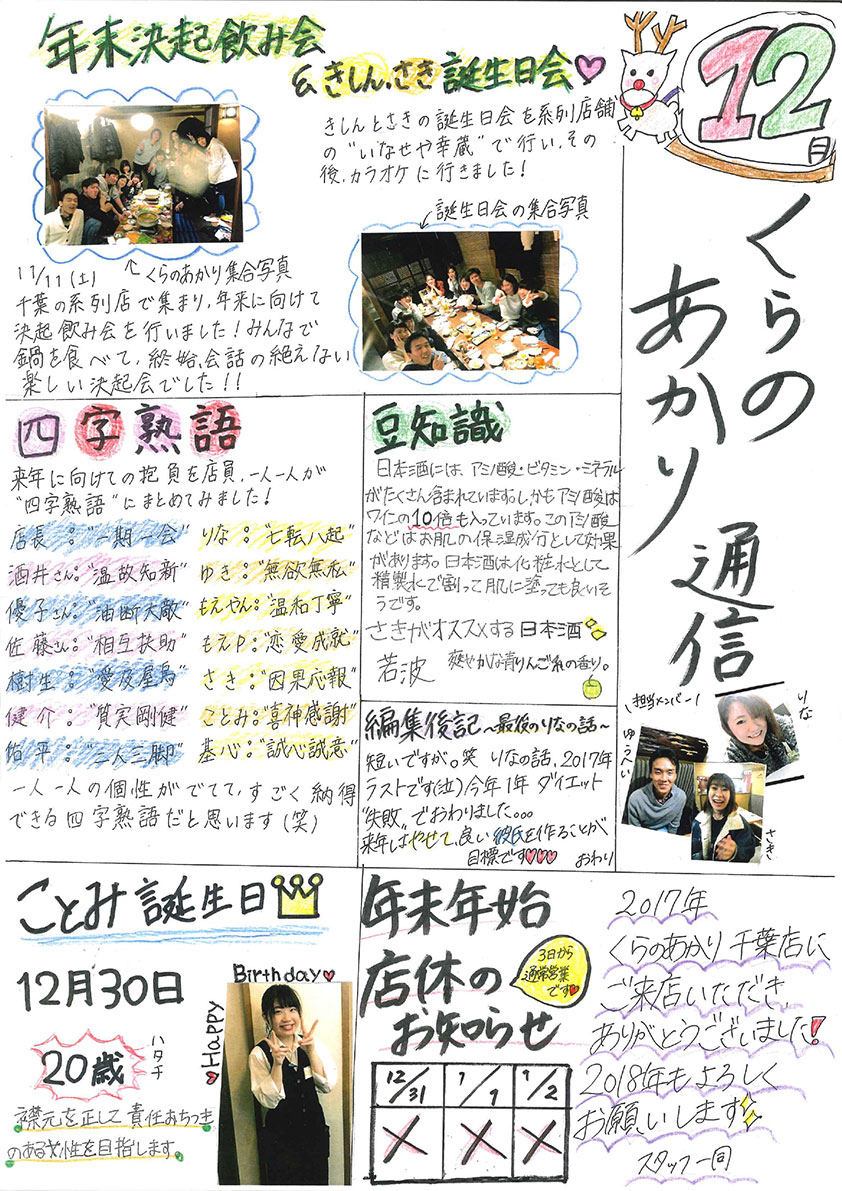 12月
くらの
あかり
通信
\担当メンバー/
りな
ゆうへい
さき
年末決起飲み会
& きしん、さき 誕生日会
きしんとさきの誕生日会を系列店舗
の"いなせや幸蔵"で行い、その
後、カラオケに行きました!
誕生日会の集合写真
11/11(土)
くらのあかり集合写真
千葉の系列店で集まり、年末に向けて
決起飲み会を行いました!みんなで
鍋を食べて、終始、会話の絶えない
楽しい決起会でした!!
四字熟語
来年に向けての抱負を店員、一人一人が
"四字熟語"にまとめてみました!
店長:"一期一会"
酒井さん:"温故知新"
優子さん:"油断大敵"
佐藤さん:"相互扶助"
樹生:"愛及屋烏"
健介:"質実剛健"
佑平:"二人三脚"
りな:"七転八起"
ゆき:"無欲無私"
もえやん:"温和丁寧"
もえP:"恋愛成就"
さき:"因果応報"
ことみ:"喜神感謝"
基心:"誠心誠意"
一人一人の個性がでてて、すごく納得
できる四字熟語だと思います(笑)
豆知識
日本酒には、アミノ酸・ビタミン・ミネラル
がたくさん含まれています。しかもアミノ酸は
ワインの10倍も入っています。このアミノ酸
などはお肌の保湿成分として効果
があります。日本酒は化粧水として
精製水で割って肌に塗っても良いそ
うです。
さきがオススメする日本酒
若波 爽やかな青りんごの香り。
編集後記~最後のりなの話~
短いですが。笑 りなの話、2017年
ラストです(泣)今年1年 ダイエット
"失敗"でおわりました。。。
来年はやせて、良い彼氏を作ることが
目標です♡♡♡ おわり
ことみ 誕生日
12月30日
ハタチ
20歳
襟元を正して責任おちつき
のある女性を目指します。
Happy
Birthday
年末年始
店休の
お知らせ
3日から
通常営業
です
12/31 1/1 1/2
× × ×
2017年
くらのあかり 千葉店に
ご来店いただき、
ありがとうございました!
2018年もよろしく
お願いします
スタッフ一同